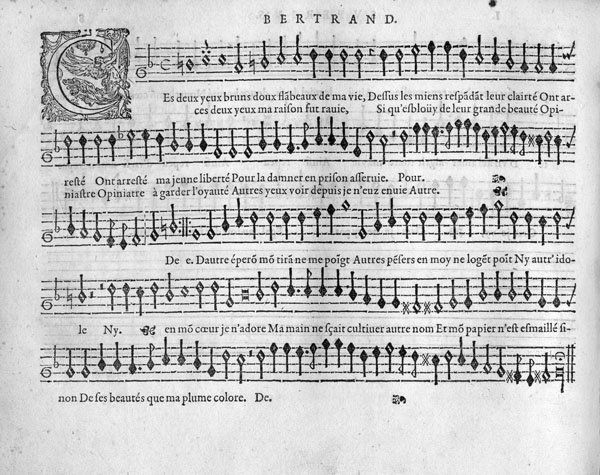 BERTRAND.
CEs deux yeux bruns doux flãbeaux de ma vie, Dessus les miens respãdãt leur clairté Ont ar-
ces deux yeux ma raison fut rauie, Si qu'esbloüy de leur grande beauté Opi-
resté Ont arresté ma jeune liberté Pour la damner en prison asseruie. Pour.
niastre Opiniatre à garder l'oyauté Autres yeux voir depuis je n'euz enuie Autre.
De e. Dautre éperõ mõ tirã ne me poĩgt Autres pẽsers en moy ne logẽt poĩt Ny autr' ido-
le Ny. en mõ cœur je n'adore Ma main ne sçait cultiuer autre nom Et mõ papier n'est esmaillé si-
non De ses beautés que ma plume colore. De.